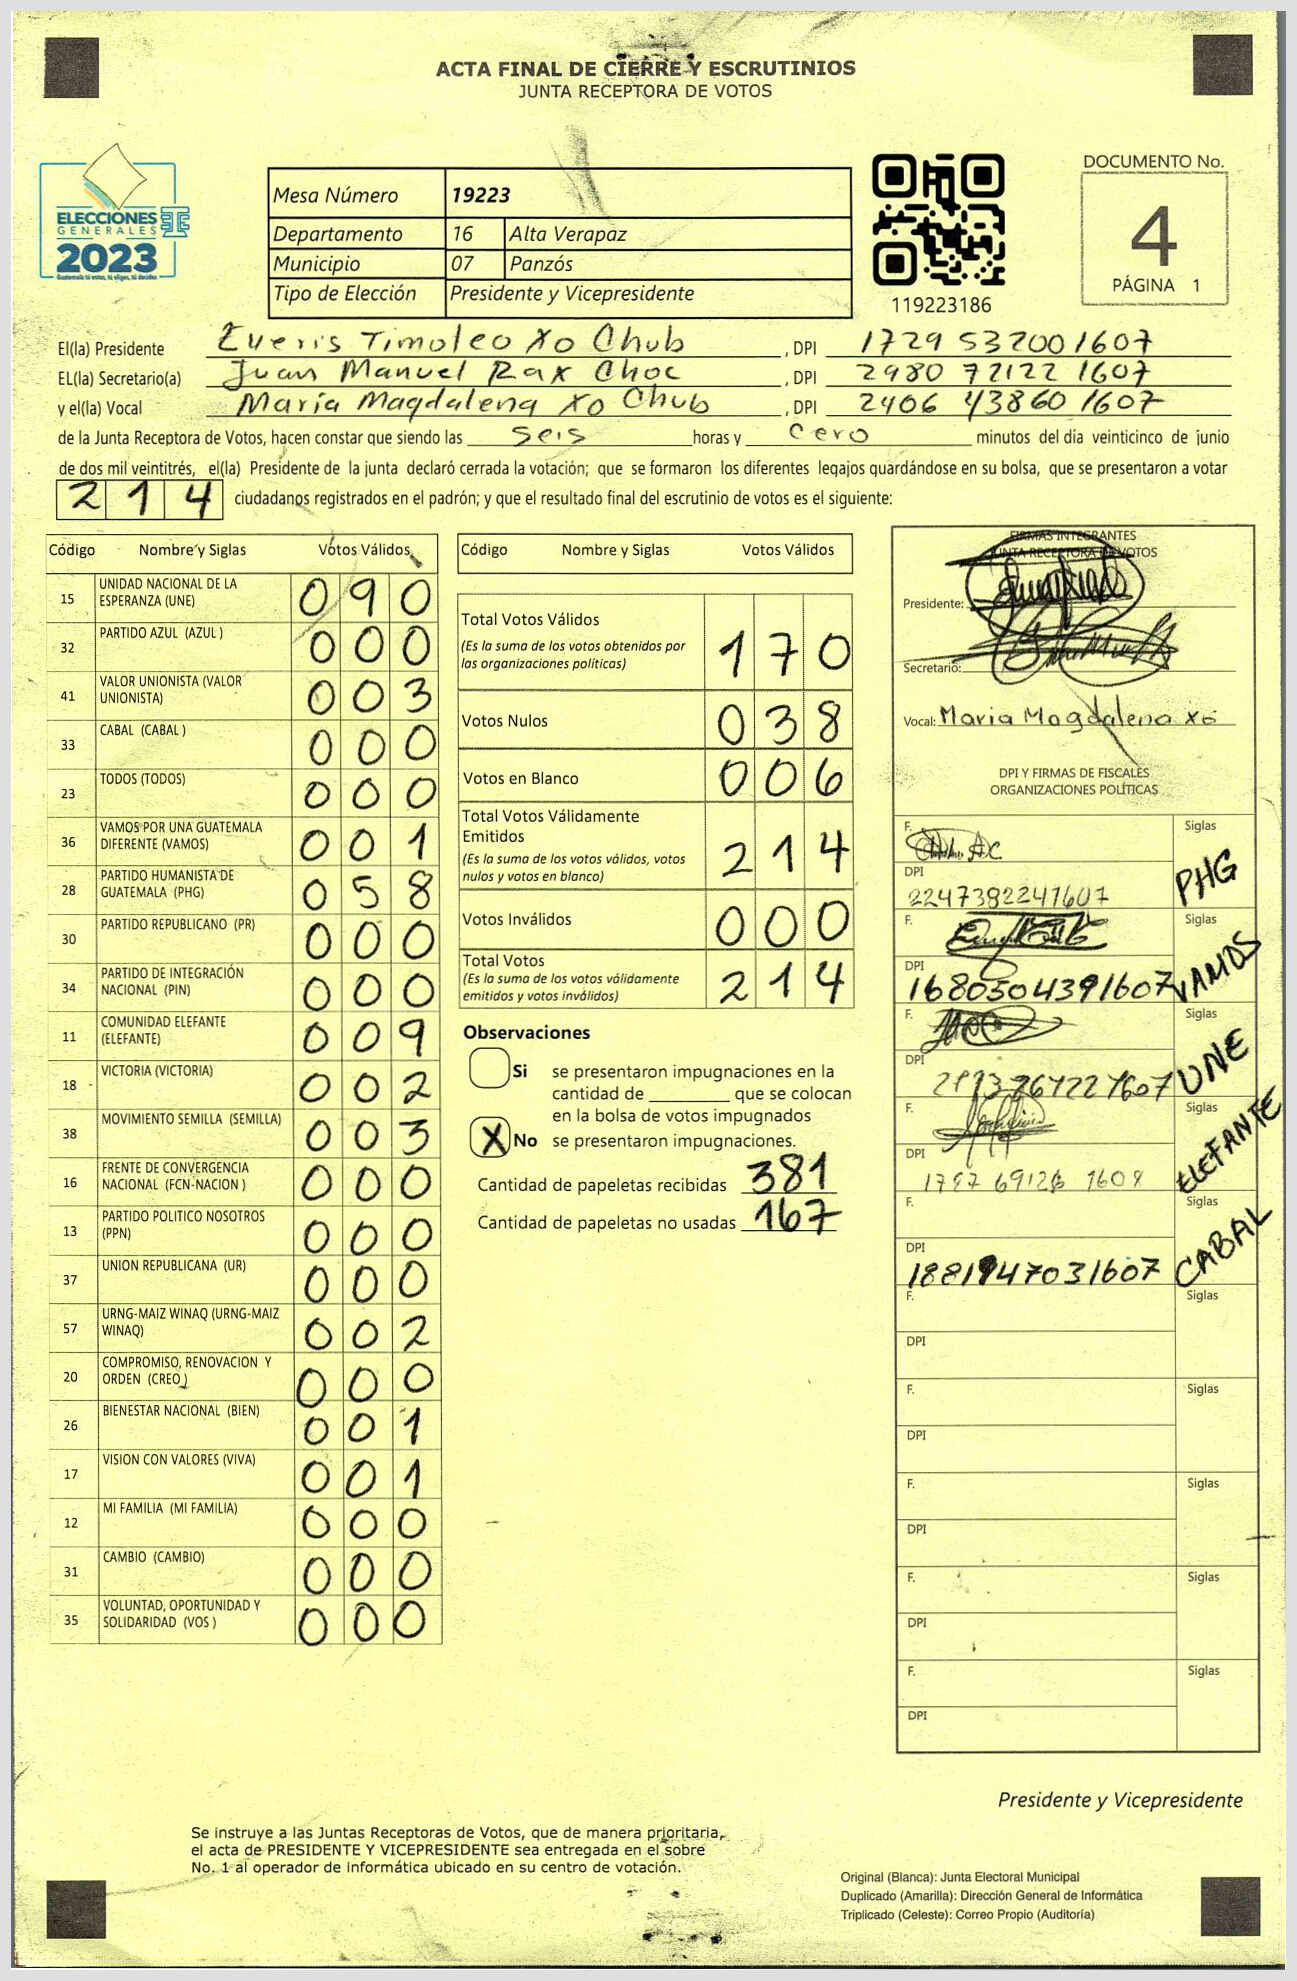 ACTA FINAL DE CIERRE Y ESCRUTINIOS
JUNTA RECEPTORA DE VOTOS
ELECCIONES
GENERALES
2023
Mesa Número 19223
Departamento 16 Alta Verapaz
Municipio 07 Panzós
Tipo de Elección Presidente y Vicepresidente
119223186
DOCUMENTO No.
4
PÁGINA 1
El(la) Presidente Everis Timoleo Xo Chub , DPI 1729 53200 1607
EL(la) Secretario(a) Juan Manuel Rax Choc , DPI 2980 72122 1607
y el(la) Vocal María Magdalena Xo Chub , DPI 2406 43860 1607
de la Junta Receptora de Votos, hacen constar que siendo las seis horas y cero minutos del día veinticinco de junio
de dos mil veintitrés, el(la) Presidente de la junta declaró cerrada la votación; que se formaron los diferentes legajos guardándose en su bolsa, que se presentaron a votar
214 ciudadanos registrados en el padrón; y que el resultado final del escrutinio de votos es el siguiente:
Código Nombre y Siglas Votos Válidos
15 UNIDAD NACIONAL DE LA ESPERANZA (UNE) 090
32 PARTIDO AZUL (AZUL ) 000
41 VALOR UNIONISTA (VALOR UNIONISTA) 003
33 CABAL (CABAL ) 000
23 TODOS (TODOS) 000
36 VAMOS POR UNA GUATEMALA DIFERENTE (VAMOS) 001
28 PARTIDO HUMANISTA DE GUATEMALA (PHG) 058
30 PARTIDO REPUBLICANO (PR) 000
34 PARTIDO DE INTEGRACIÓN NACIONAL (PIN) 000
11 COMUNIDAD ELEFANTE (ELEFANTE) 009
18 VICTORIA (VICTORIA) 002
38 MOVIMIENTO SEMILLA (SEMILLA) 003
16 FRENTE DE CONVERGENCIA NACIONAL (FCN-NACION ) 000
13 PARTIDO POLITICO NOSOTROS (PPN) 000
37 UNION REPUBLICANA (UR) 000
57 URNG-MAIZ WINAQ (URNG-MAIZ WINAQ) 002
20 COMPROMISO, RENOVACION Y ORDEN (CREO ) 000
26 BIENESTAR NACIONAL (BIEN) 001
17 VISION CON VALORES (VIVA) 001
12 MI FAMILIA (MI FAMILIA) 000
31 CAMBIO (CAMBIO) 000
35 VOLUNTAD, OPORTUNIDAD Y SOLIDARIDAD (VOS ) 000
Código Nombre y Siglas Votos Válidos
Total Votos Válidos 170
(Es la suma de los votos obtenidos por
las organizaciones políticas)
Votos Nulos 038
Votos en Blanco 006
Total Votos Válidamente
Emitidos 214
(Es la suma de los votos válidos, votos
nulos y votos en blanco)
Votos Inválidos 000
Total Votos 214
(Es la suma de los votos válidamente
emitidos y votos inválidos)
Observaciones
Si se presentaron impugnaciones en la
cantidad de ________ que se colocan
en la bolsa de votos impugnados
X No se presentaron impugnaciones.
Cantidad de papeletas recibidas 381
Cantidad de papeletas no usadas 167
FIRMAS INTEGRANTES
JUNTA RECEPTORA DE VOTOS
Presidente:
Secretario:
Vocal: Maria Magdalena Xó
DPI Y FIRMAS DE FISCALES
ORGANIZACIONES POLÍTICAS
F. Siglas
DPI 2247382241607 PHG
F. Siglas
DPI 1680504391607 VAMOS
F. Siglas
DPI UNE
F. Siglas
DPI ELEFANTE
F. Siglas
DPI CABAL
F. Siglas
DPI
F. Siglas
DPI
F. Siglas
DPI
F. Siglas
DPI
F. Siglas
DPI
Presidente y Vicepresidente
Se instruye a las Juntas Receptoras de Votos, que de manera prioritaria,
el acta de PRESIDENTE Y VICEPRESIDENTE sea entregada en el sobre
No. 1 al operador de informática ubicado en su centro de votación.
Original (Blanca): Junta Electoral Municipal
Duplicado (Amarilla): Dirección General de Informática
Triplicado (Celeste): Correo Propio (Auditoría)